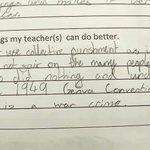 gs my teacher(s) can do better.
use collective punishment as i
not fair on the many people
did nothing and und
1949 Geneva Convention
is a war crime.